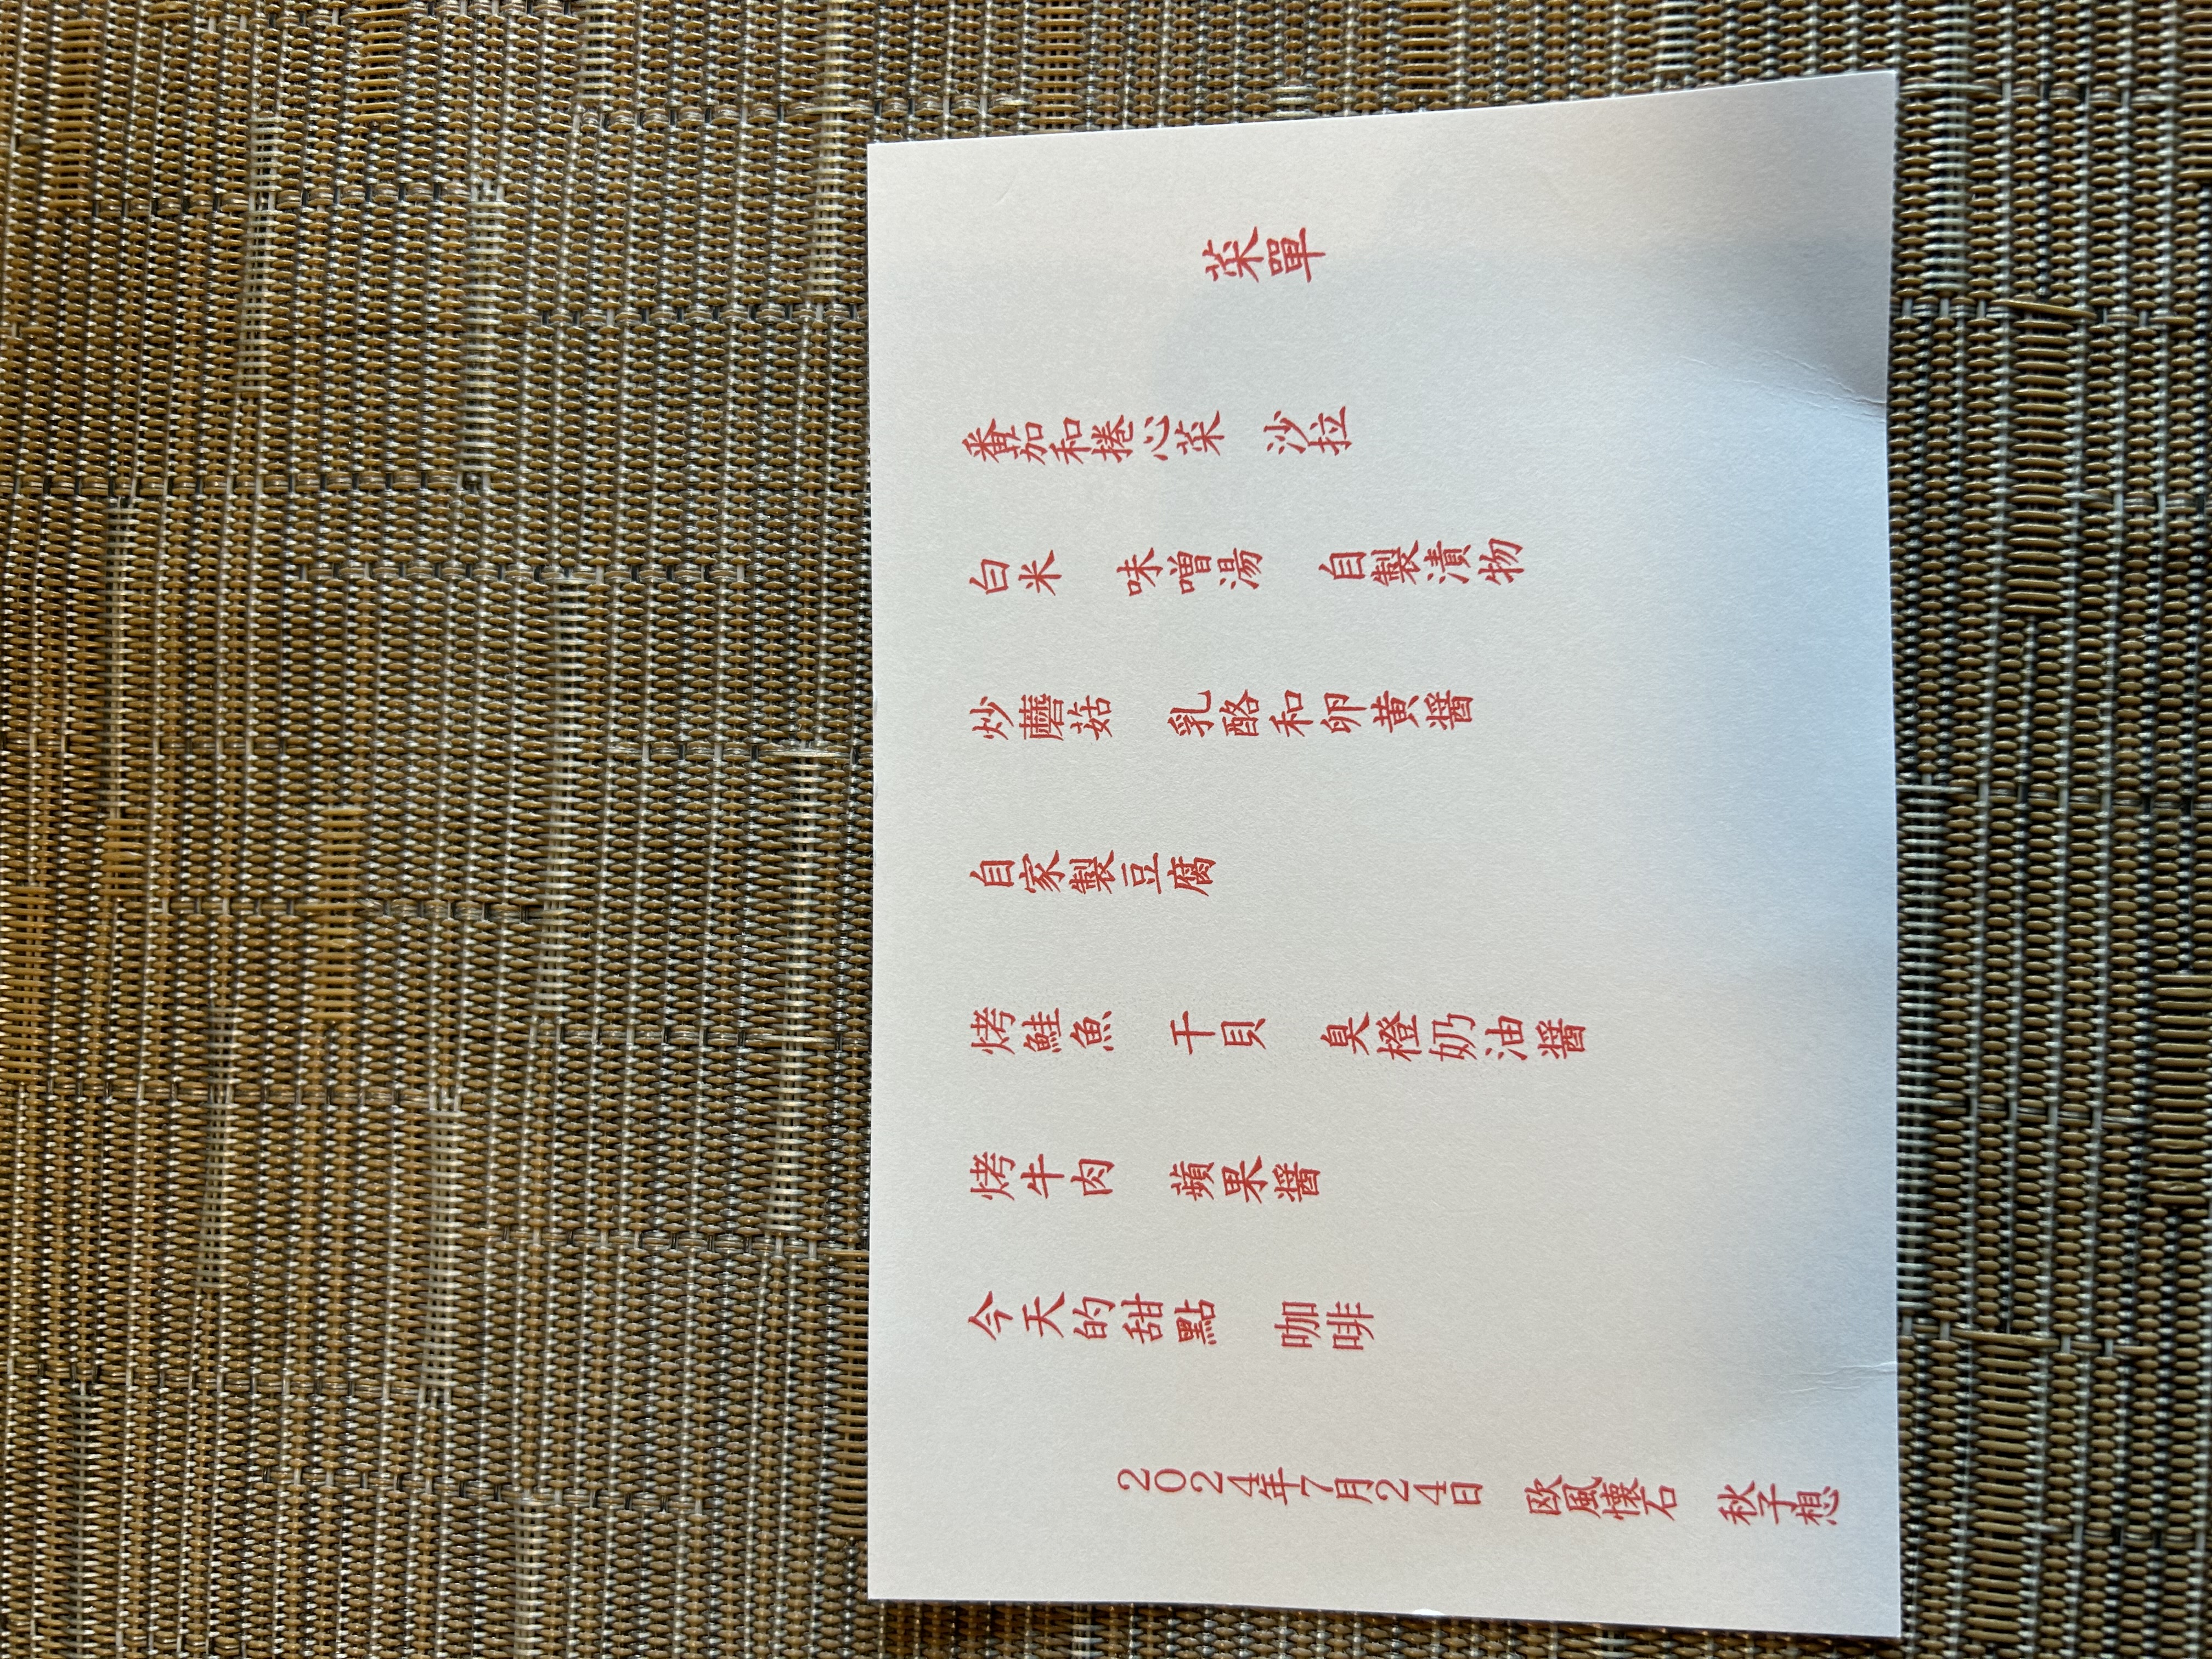 菜單
番茄和捲心菜　沙拉
白米　味噌湯　自製漬物
炒蘑菇　乳酪和卵黄醤
自家製豆腐
烤鮭魚　干貝　臭橙奶油醤
烤牛肉　蘋果醤
今天的甜點　咖啡
2024年7月24日　欧風懐石　秋子想